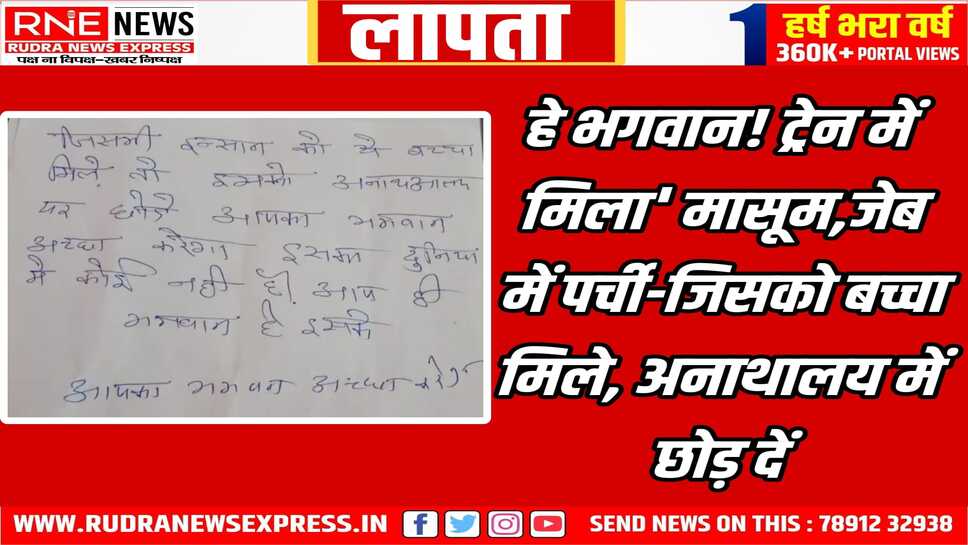 RNE NEWS
RUDRA NEWS EXPRESS
पक्ष ना विपक्ष-खबर निष्पक्ष
लापता
1 हर्ष भरा वर्ष
360K+ PORTAL VIEWS
जिसभी इन्सान को ये बच्चा
मिले वो इसको अनाथआलय
पर छोडे आपका भगवान
अच्छा करेगा इसका दुनिया
मे कोई नही है। आप ही
भगवान है इसके
आपका भगवान अच्छा करेगा
हे भगवान! ट्रेन में
मिला' मासूम,जेब
में पर्ची-जिसको बच्चा
मिले, अनाथालय में
छोड़ दें
WWW.RUDRANEWSEXPRESS.IN
SEND NEWS ON THIS : 78912 32938